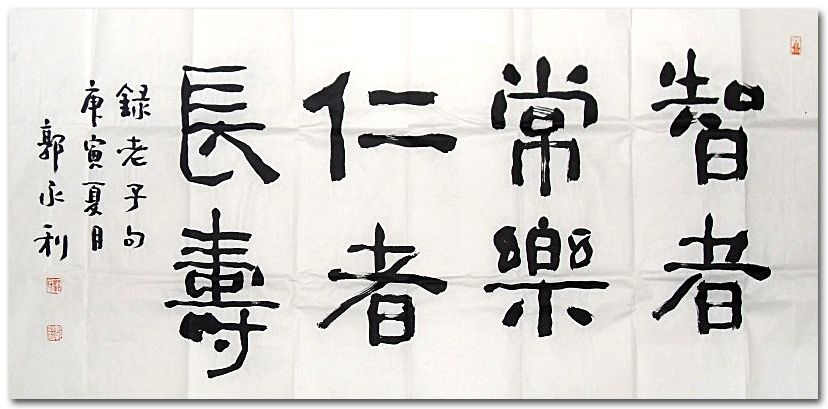 智者
常樂
仁者
長壽
録老子句
庚寅夏月
郭永利